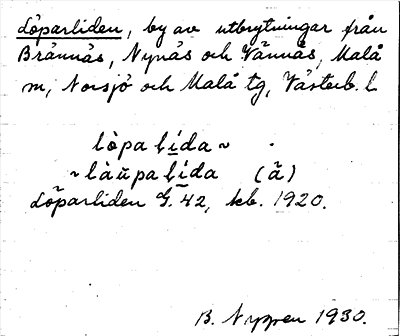 Löparliden, by av utbrytningar från
Brännås, Nynäs och Vännäs, Malå
m, Norsjö och Malå tg, Västerb. l.
lòpalída ~
~ làŭpalída (ã)
Löparliden G. 42, kb. 1920.
B. Nyppen 1930.